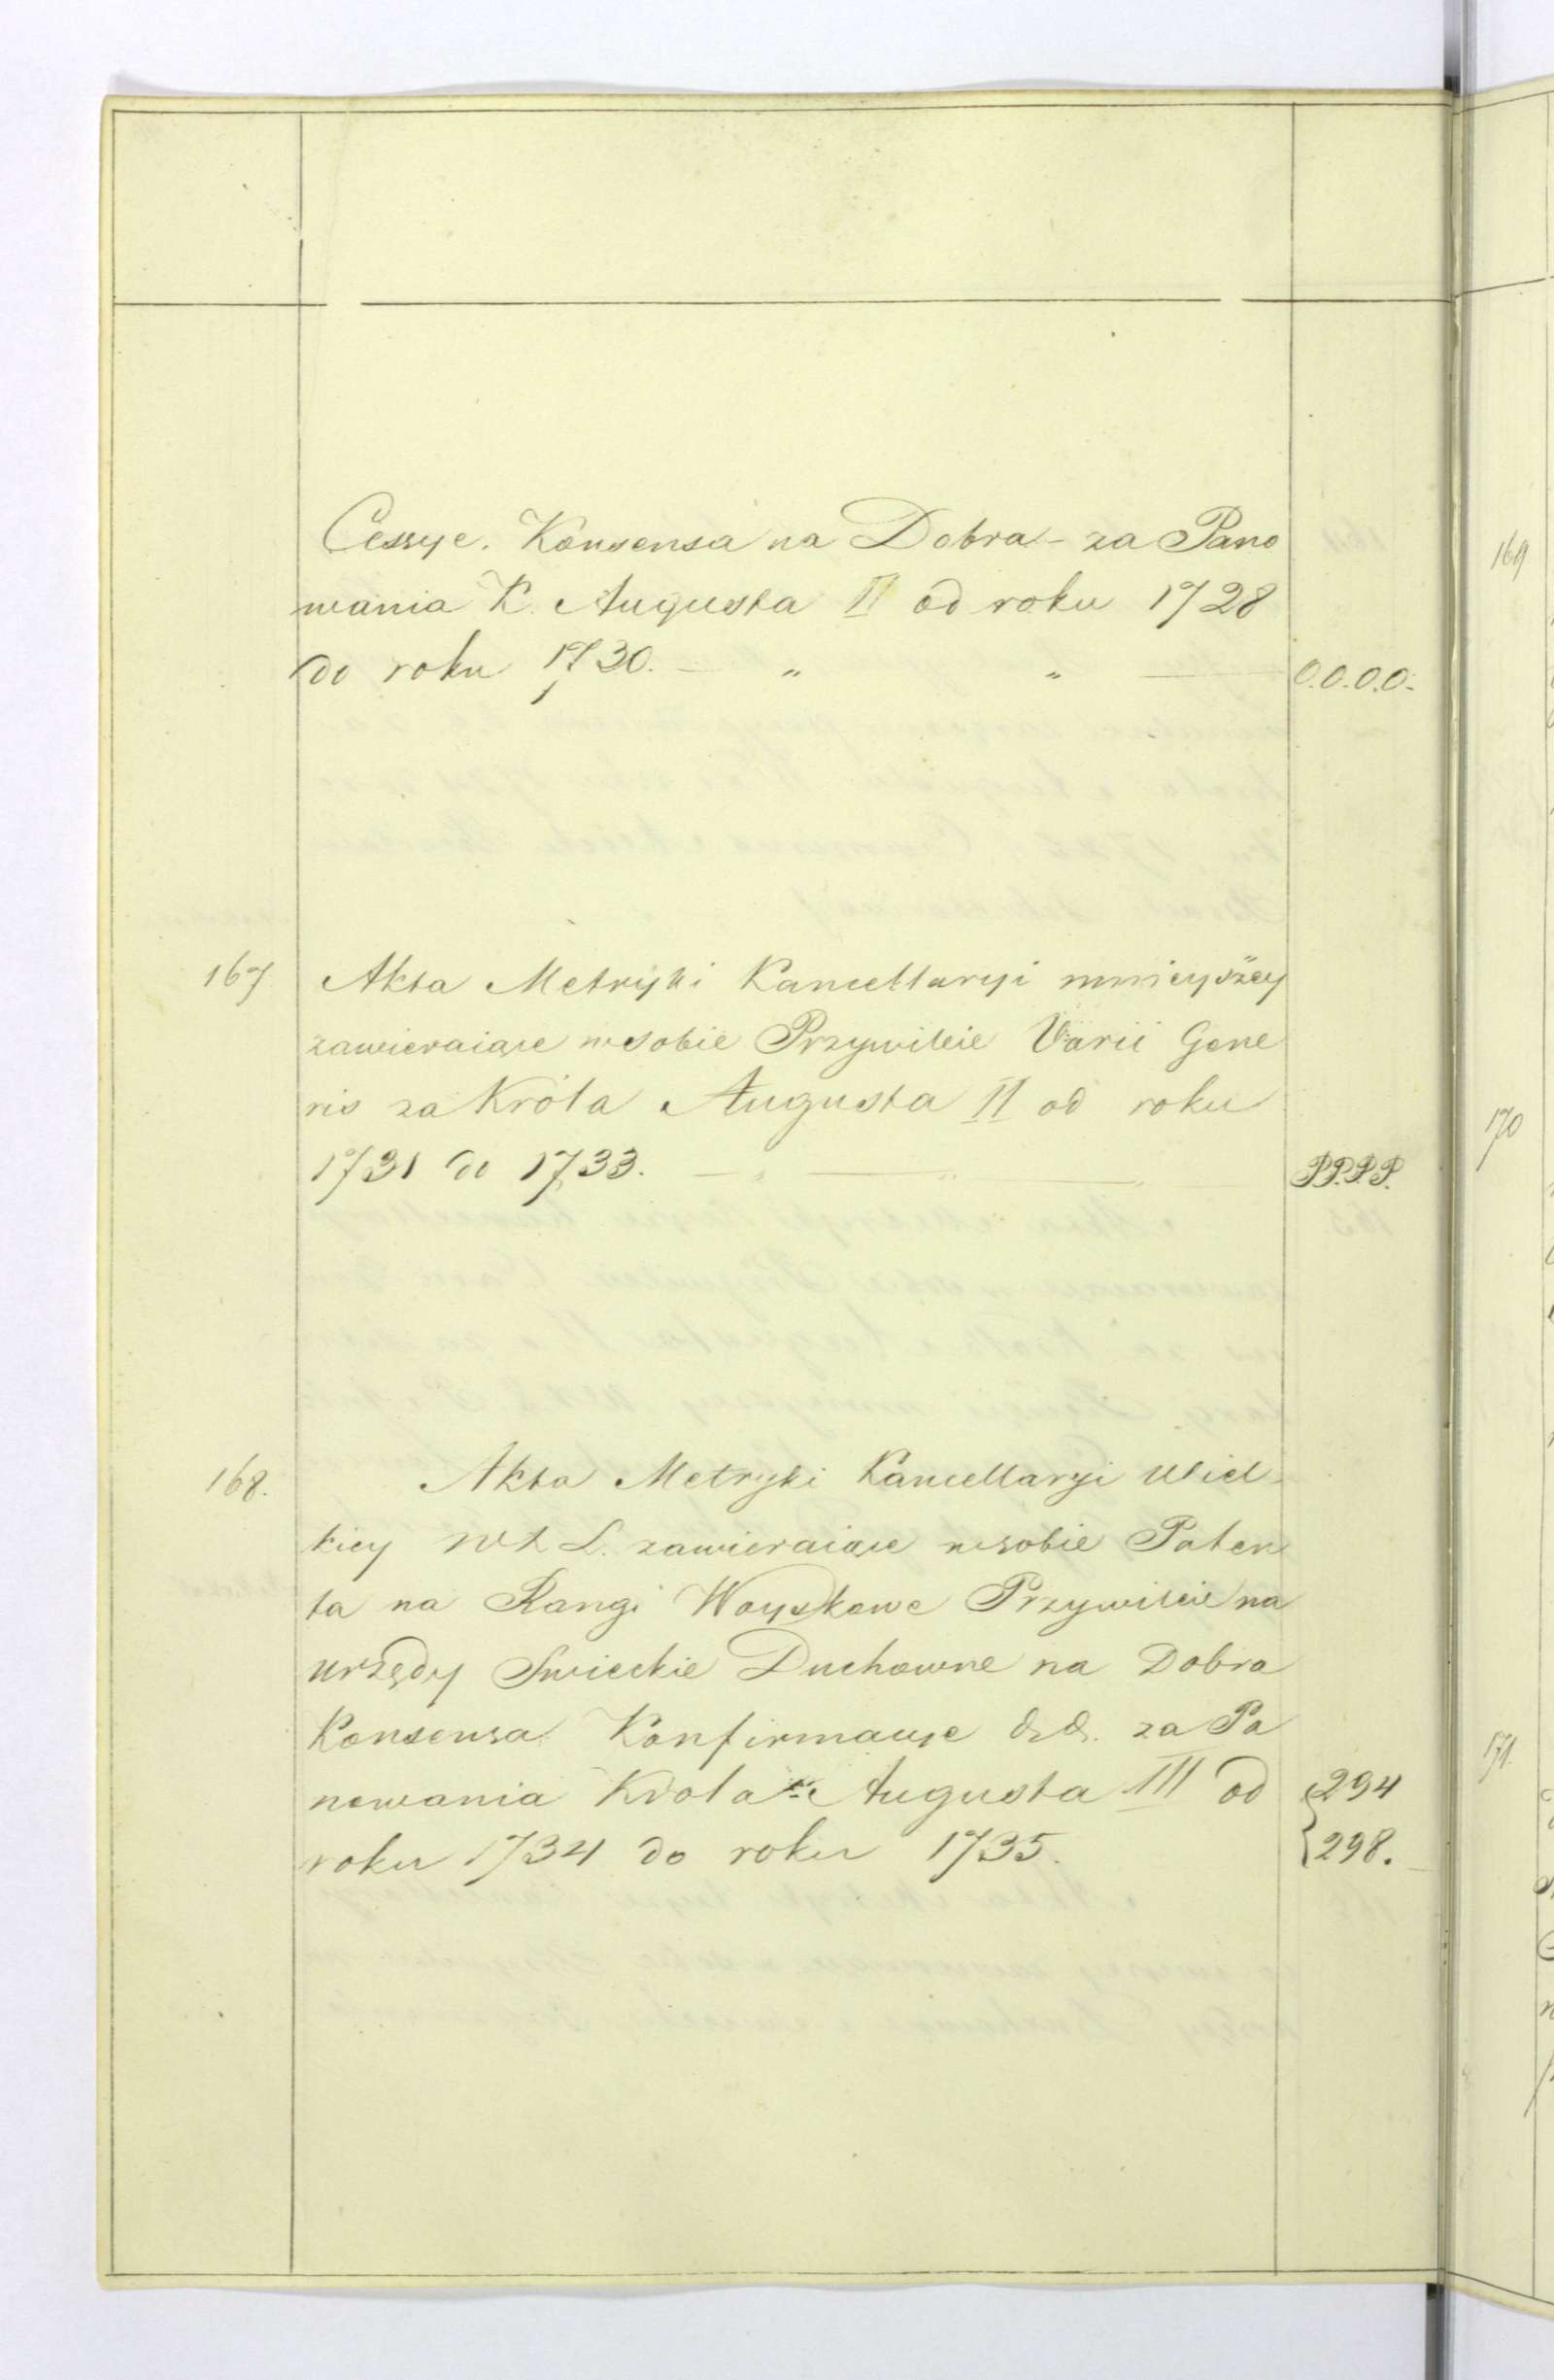 Cessye. Konsensa na Dobra - za Pano
wania K. Augusta II od roku 1728
do roku 1730. — " " — O.O.O.O.
167 Akta Metryki Kancellaryi mnieyszey
zawieraiące w sobie Przywileie Varii Gene
ris za Króla Augusta II od roku
1731 do 1733. — P.P.P.P.
168. Akta Metryki Kancellaryi Wiel-
kiey W X L. zawieraiące w sobie Paten
ta na Rangi Woyskowe Przywileie na
urzędy Swieckie Duchowne na Dobra
Konsensa Konfirmacye za Pa
nowania Krola Augusta III od 294
roku 1734 do roku 1735. 298.
169
170
171.